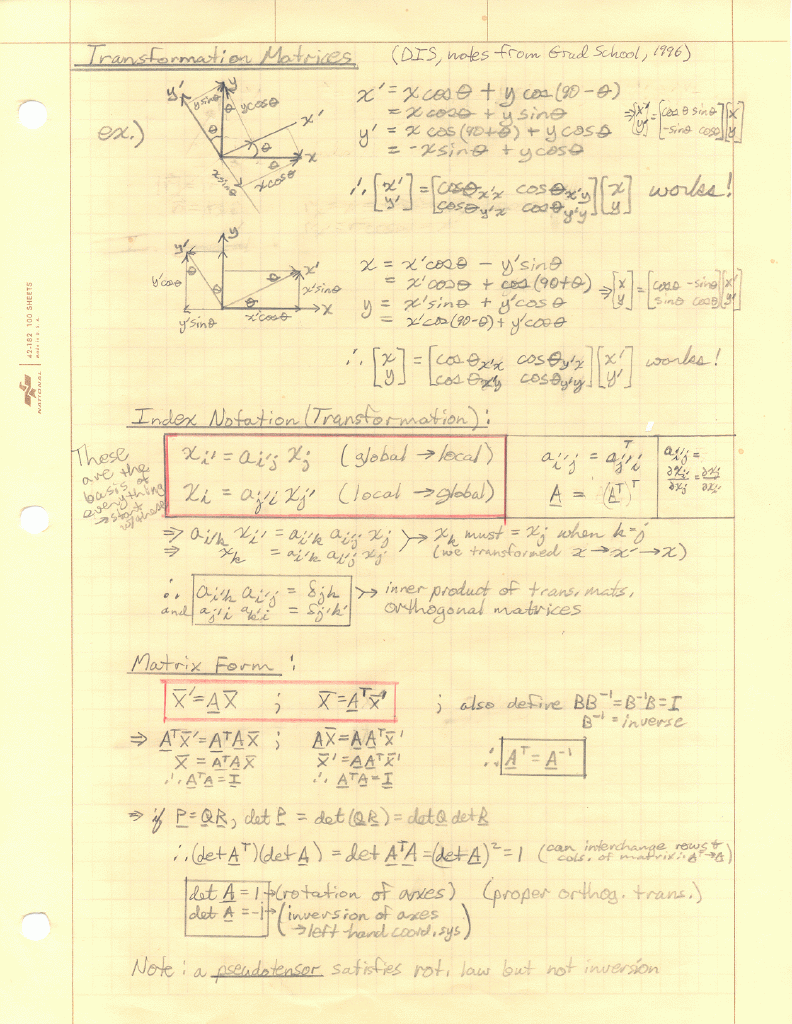 Transformation Matrices (DIS, notes from Grad School, 1996)
ex.)
y' y x' x
y sinθ y cosθ θ θ θ θ
x sinθ x cosθ
x' = x cosθ + y cos(90-θ)
= x cosθ + y sinθ
y' = x cos(90+θ) + y cosθ
= -x sinθ + y cosθ
⇒ [x' y'] = [cosθ sinθ -sinθ cosθ] [x y]
∴ [x' y'] = [cosθx'x cosθx'y cosθy'x cosθy'y] [x y] works!
y' y x' x
y'cosθ θ θ θ x'sinθ
y'sinθ x'cosθ
x = x'cosθ - y'sinθ
= x'cosθ + cos(90+θ)
y = x'sinθ + y'cosθ
= x'cos(90-θ) + y'cosθ
⇒ [x y] = [cosθ -sinθ sinθ cosθ] [x' y']
∴ [x y] = [cosθx'x cosθy'x cosθx'y cosθy'y] [x' y'] works!
42-182 100 SHEETS
NATIONAL
Index Notation (Transformation):
These
are the
basis of
everything
→start
w/these
xi' = ai'j xj (global → local)
xi = aj'i xj' (local → global)
ai'j = aj'iᵀ
A = (Aᵀ)ᵀ
ai'j =
∂xi'/∂xj = ∂xj/∂xi'
⇒ ai'k xi' = ai'k ai'j xj ⤚ xk must = xj when k=j
⇒ xk = ai'k ai'j xj (we transformed x → x' → x)
∴ ai'k ai'j = δjk ⤚ inner product of trans. mats.
and aj'i ak'i = δj'k' orthogonal matrices
Matrix Form:
X̄' = AX̄ ; X̄ = AᵀX̄' ; also define BB⁻¹ = B⁻¹B = I
B⁻¹ = inverse
⇒ AᵀX̄' = AᵀAX̄ ; AX̄ = AAᵀX̄'
X̄ = AᵀAX̄ X̄' = AAᵀX̄'
∴ AᵀA = I ∴ AᵀA = I
∴ Aᵀ = A⁻¹
⇒ if P = QR, det P = det(QR) = detQ detR
∴ (det Aᵀ)(det A) = det AᵀA = (det A)² = 1 (can interchange rows &
cols. of matrix ∴ Aᵀ→A)
det A = 1 → (rotation of axes) (proper orthog. trans.)
det A = -1 → (inversion of axes
→ left hand coord. sys)
Note: a pseudotensor satisfies rot. law but not inversion